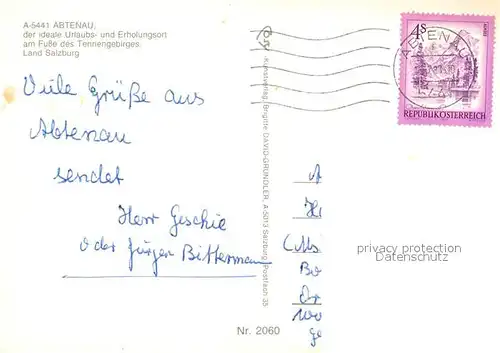 A-5441 ABTENAU,
der ideale Urlaubs- und Erholungsort
am Fuße des Tennengebirges,
Land Salzburg
Viele Grüße aus
Abtenau
sendet
Herr Geschie
oder Jürgen Bittermann
Kunstverlag Brigitte DAVID-GRÜNDLER, A-5013 Salzburg, Postfach 35
Nr. 2060
4S
REPUBLIK ÖSTERREICH
ABTENAU
privacy protection
Datenschutz